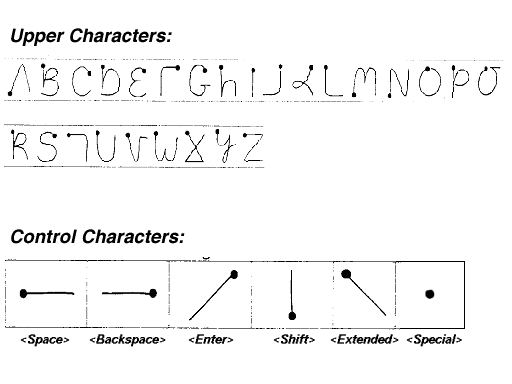 Upper Characters:
A B C D E F G h I J K L M N O P Q
R S T U V W X Y Z
Control Characters:
<Space> <Backspace> <Enter> <Shift> <Extended> <Special>